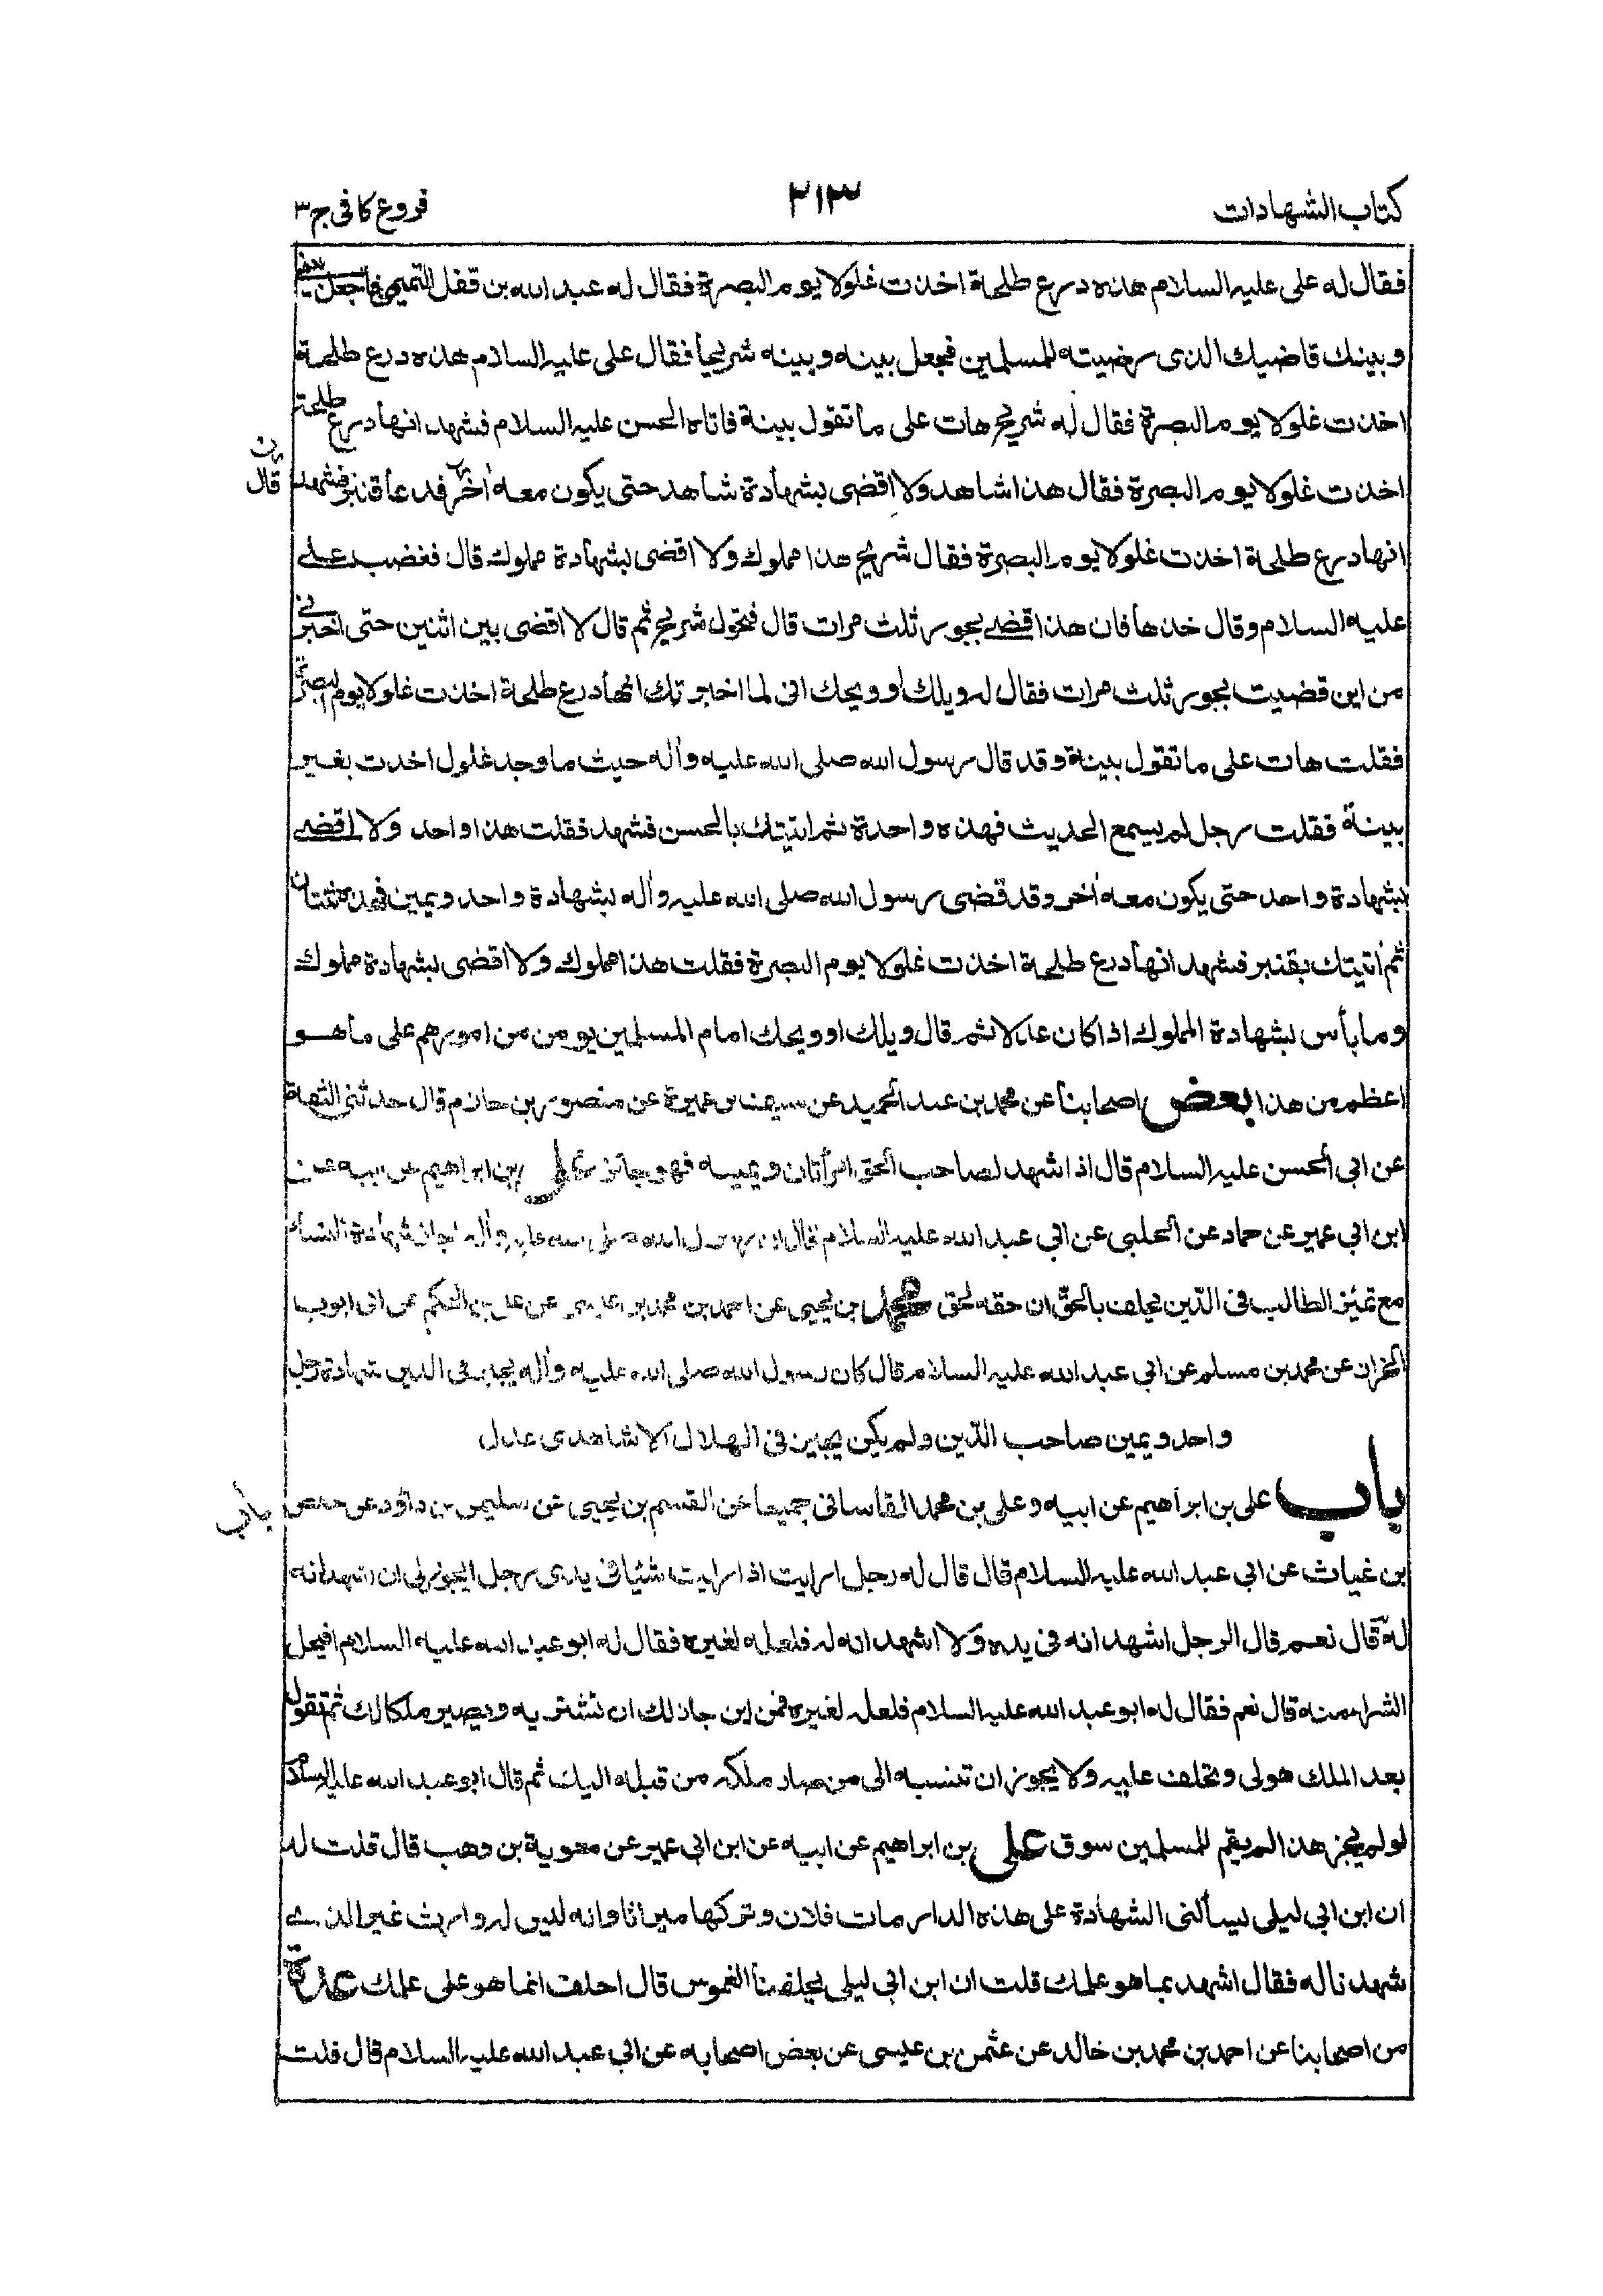 كتاب الشهادات
٢١٣
فروع كافى ج ٣
فقال له على عليه السلام هذه درع طلحة اخذت غلولا يوم البصرة فقال له عبد الله بن قفل التميمى فاجعل بينى
وبينك قاضيك الذى رضيته للمسلمين فجعل بينه وبينه شريحا فقال على عليه السلام هذه درع طلحة
اخذت غلولا يوم البصرة فقال له شريح هات على ما تقول بينة فاتاه الحسن عليه السلام فشهد انها درع طلحة
اخذت غلولا يوم البصرة فقال هذا شاهد ولا اقضى بشهادة شاهد حتى يكون معه اخر فدعا قنبر فشهد
قال
انها درع طلحة اخذت غلولا يوم البصرة فقال شريح هذا مملوك ولا اقضى بشهادة مملوك قال فغضب على
عليه السلام وقال خذها فان هذا قضى بجور ثلث مرات قال فتحول شريح ثم قال لا اقضى بين اثنين حتى اخبرنى
من اين قضيت بجور ثلث مرات فقال له ويلك او ويحك انى لما اخبرتك انها درع طلحة اخذت غلولا يوم البصرة
فقلت هات على ما تقول بينة وقد قال رسول الله صلى الله عليه وآله حيث ما وجد غلول اخذت بغير
بينة فقلت رجل لم يسمع الحديث فهذه واحدة ثم اتيتك بالحسن فشهد فقلت هذا واحد ولا اقضى
بشهادة واحد حتى يكون معه اخر وقد قضى رسول الله صلى الله عليه وآله بشهادة واحد ويمين فهذه ثنتان
ثم اتيتك بقنبر فشهد انها درع طلحة اخذت غلولا يوم البصرة فقلت هذا مملوك ولا اقضى بشهادة مملوك
وما بأس بشهادة المملوك اذا كان عدلا ثم قال ويلك او ويحك امام المسلمين يومن من امورهم على ما هو
اعظم من هذا بعض اصحابنا عن محمد بن عبد الحميد عن سيف بن عميرة عن منصور بن حازم قال حدثنى الثقة
عن ابى الحسن عليه السلام قال اذا شهد لصاحب الحق امرأتان ويمينه فهو جائز على بن ابراهيم عن ابيه عن
ابن ابى عمير عن حماد عن الحلبى عن ابى عبد الله عليه السلام قال ان رسول الله صلى الله عليه وآله اجاز شهادة النساء
مع يمين الطالب فى الدين يحلف بالحق ان حقه لحق محمد بن يحيى عن احمد بن محمد بن عيسى عن على بن الحكم عن ابى ايوب
الخزاز عن محمد بن مسلم عن ابى عبد الله عليه السلام قال كان رسول الله صلى الله عليه وآله يجيز فى الدين شهادة رجل
واحد ويمين صاحب الدين ولم يكن يجيز فى الهلال الا شاهدى عدل
باب على بن ابراهيم عن ابيه وعلى بن محمد القاسانى جميعا عن القسم بن يحيى عن سليمن بن داود عن حفص
باب
بن غياث عن ابى عبد الله عليه السلام قال قال له رجل ارايت اذا رايت شئيا فى يدى رجل ايجوز لى ان اشهد انه
له قال نعم قال الرجل اشهد انه فى يده ولا اشهد انه له فلعله لغيره فقال له ابو عبد الله عليه السلام افيحل
الشراء منه قال نعم فقال له ابو عبد الله عليه السلام فلعله لغيره فمن اين جاز لك ان تشتريه ويصير ملكا لك ثم تقول
بعد الملك هو لى وتحلف عليه ولا يجوز ان تنسبه الى من صار ملكه من قبله اليك ثم قال ابو عبد الله عليه السلام
لو لم يجز هذا لم يقم للمسلمين سوق على بن ابراهيم عن ابيه عن ابن ابى عمير عن معوية بن وهب قال قلت له
ان ابن ابى ليلى يسألنى الشهادة على هذه الدار مات فلان وتركها ميراثا وانه ليس له وارث غير الذى
شهدنا له فقال اشهد بما هو علمك قلت ان ابن ابى ليلى يحلفنا الغموس قال احلف انما هو على علمك عدة
من اصحابنا عن احمد بن محمد بن خالد عن عثمن بن عيسى عن بعض اصحابه عن ابى عبد الله عليه السلام قال قلت